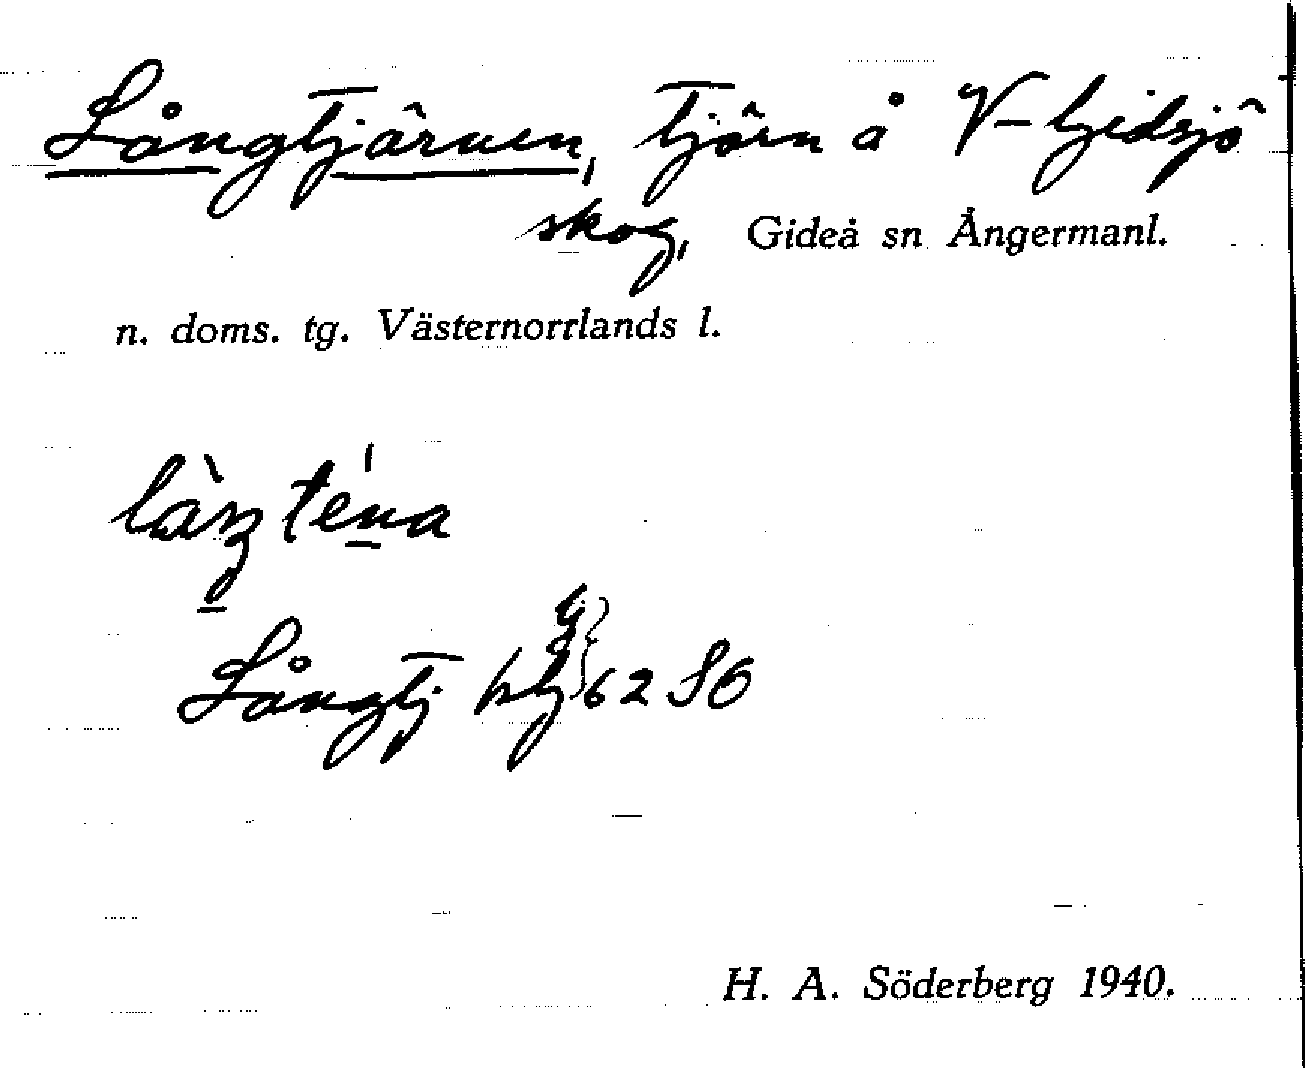 Långtjärnen, tjärn å V-Gidsjö
skog, Gideå sn Ångermanl.
n. doms. tg. Västernorrlands l.
Långtj 62 SO
H. A. Söderberg 1940.